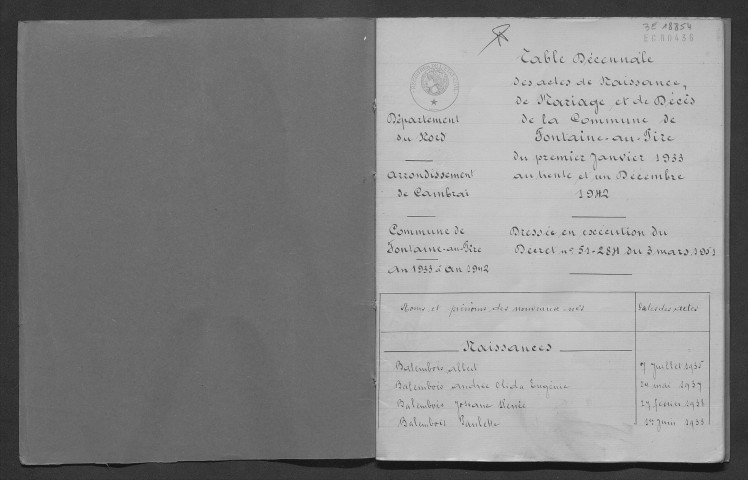 3E 18854
EC00436
Table Décennale
des actes de Naissance,
de Mariage et de Décès
de la Commune de
Fontaine-au-Pire
du premier Janvier 1933
au trente et un Decembre
1942
Département
du Nord
Arrondissement
de Cambrai
Commune de
Fontaine-au-Pire
An 1933 à an 1942
Dressée en exécution du
Decret n° 51-284 du 3 mars 1951
Noms et prénoms des nouveaux-nés
Dates des actes
Naissances
Batembois Albert
7 Juillet 1935
Batembois Andrée Eugénie
29 mai 1937
Batembois Josiane Renée
27 février 1938
Batembois Paulette
Juin 1933